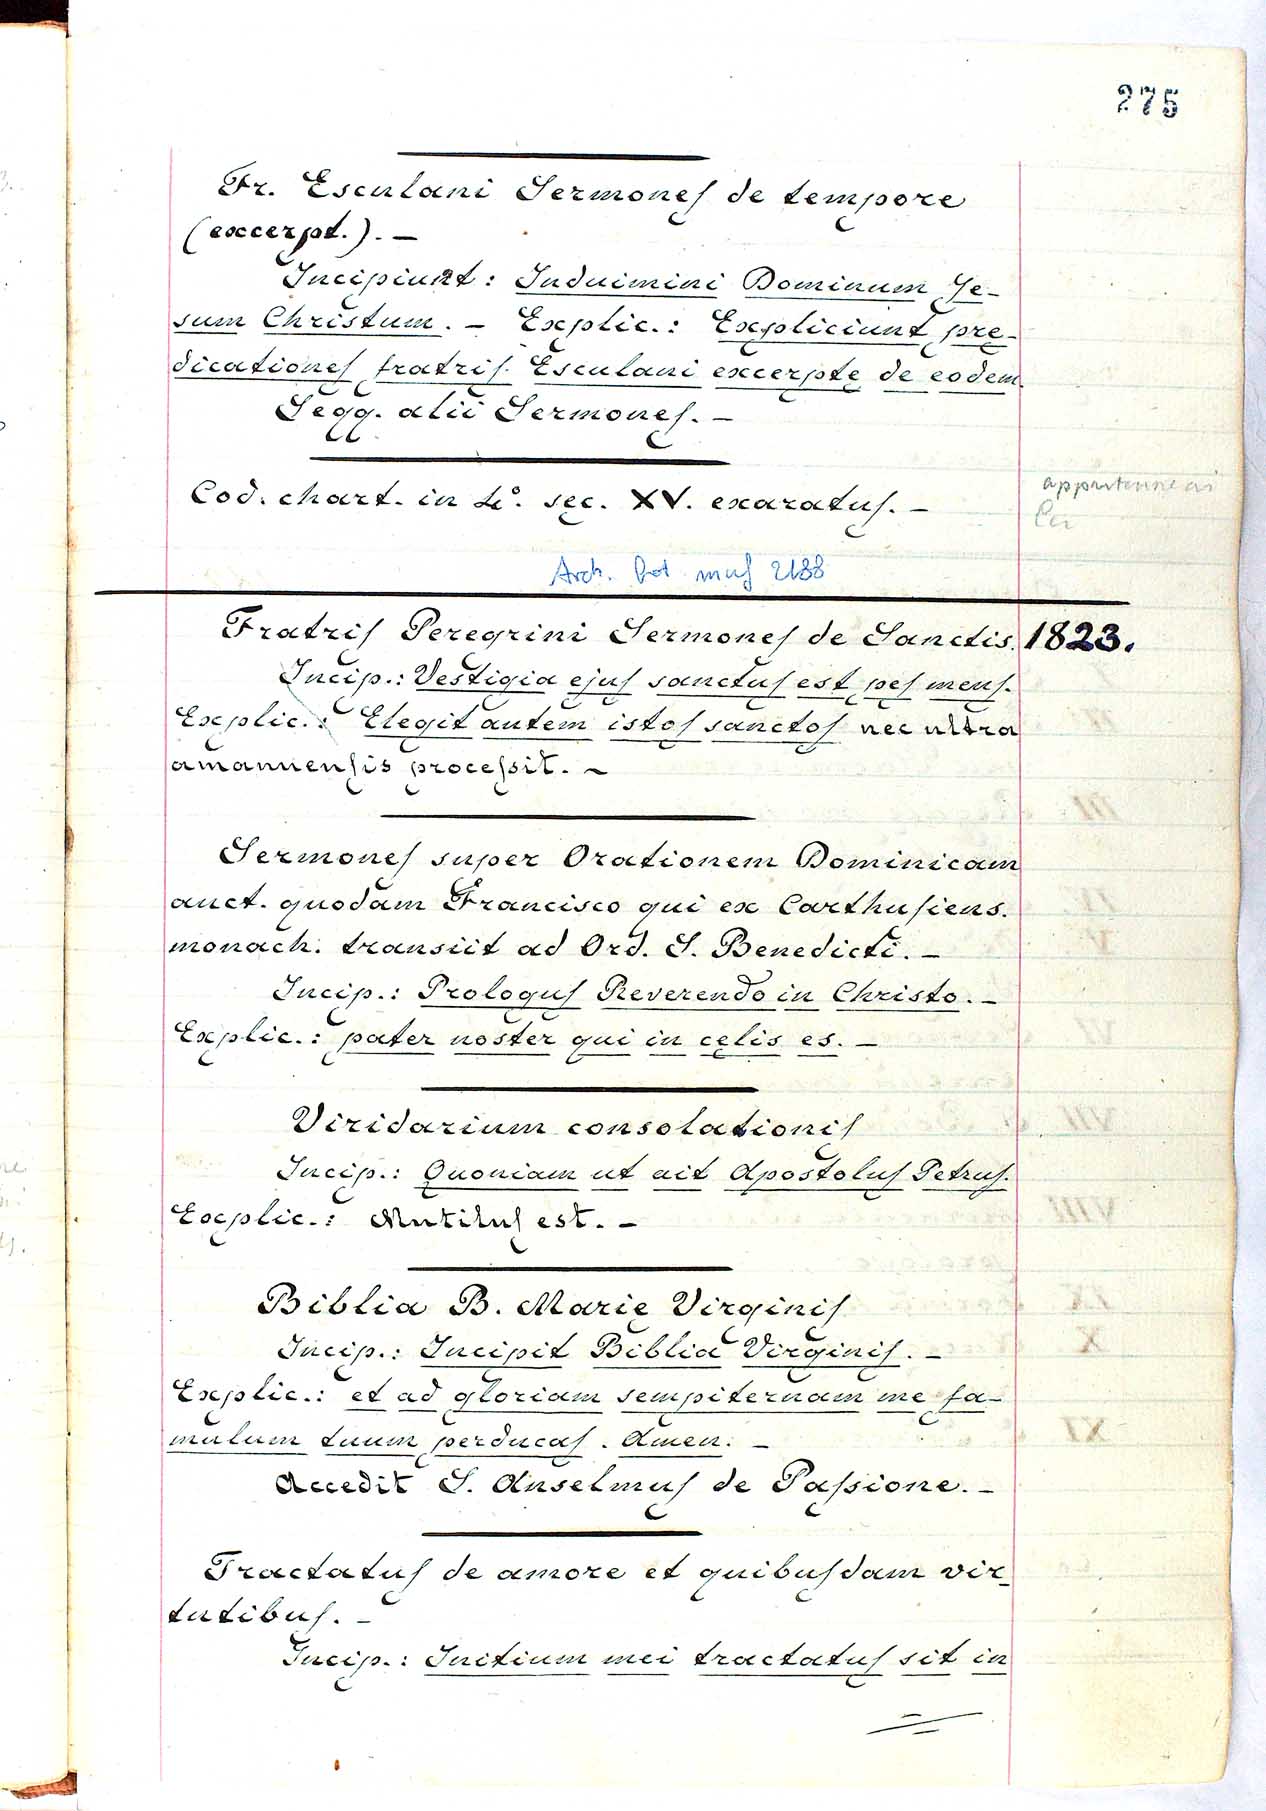 275
Fr. Esculani Sermones de tempore
(excerpt.). —
Incipiunt: Induimini Dominum Je-
sum Christum. — Explic.: Expliciunt pre-
dicationes fratris Esculani excerpte de eodem.
Seqq. alii Sermones. —
Cod. chart. in 4°. sec. XV. exaratus. —
Arch. fot. mus 2188
Fratris Peregrini Sermones de Sanctis. 1823.
Incip.: Vestigia ejus sanctus est pes meus.
Explic.: Elegit autem istos sanctos nec ultra
amanuensis processit. —
Sermones super Orationem Dominicam
auct. quodam Francisco qui ex Carthusiens.
monach. transiit ad Ord. S. Benedicti. —
Incip.: Prologus Reverendo in Christo. —
Explic.: pater noster qui in cęlis es. —
Viridarium consolationis
Incip.: Quoniam ut ait Apostolus Petrus.
Explic.: Mutilus est. —
Biblia B. Marię Virginis
Incip.: Incipit Biblia Virginis. —
Explic.: et ad gloriam sempiternam me fa-
mulum tuum perducas. Amen. —
Accedit S. Anselmus de Passione. —
Tractatus de amore et quibusdam vir-
tutibus. —
Incip.: Initium mei tractatus sit in